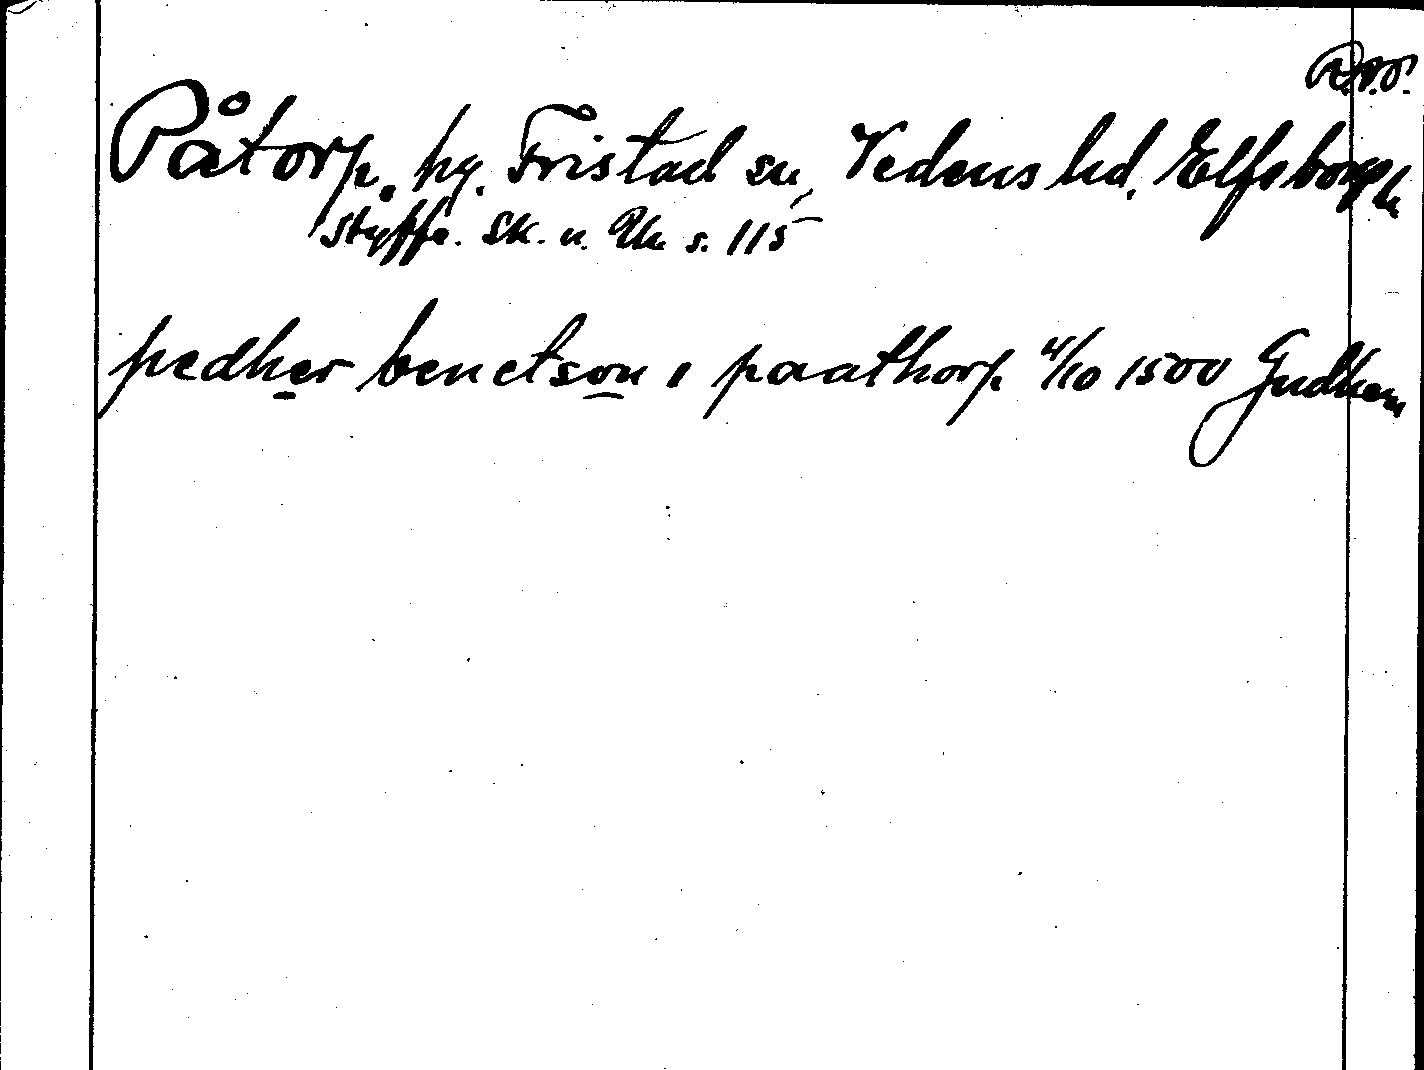 Påtorp. hg. Fristad sn, Vedens hd. Elfsborgs l.
Styffe. Sk. u. Un. s. 115
pedher benctson i paathorp 4/10 1500 Gudhem